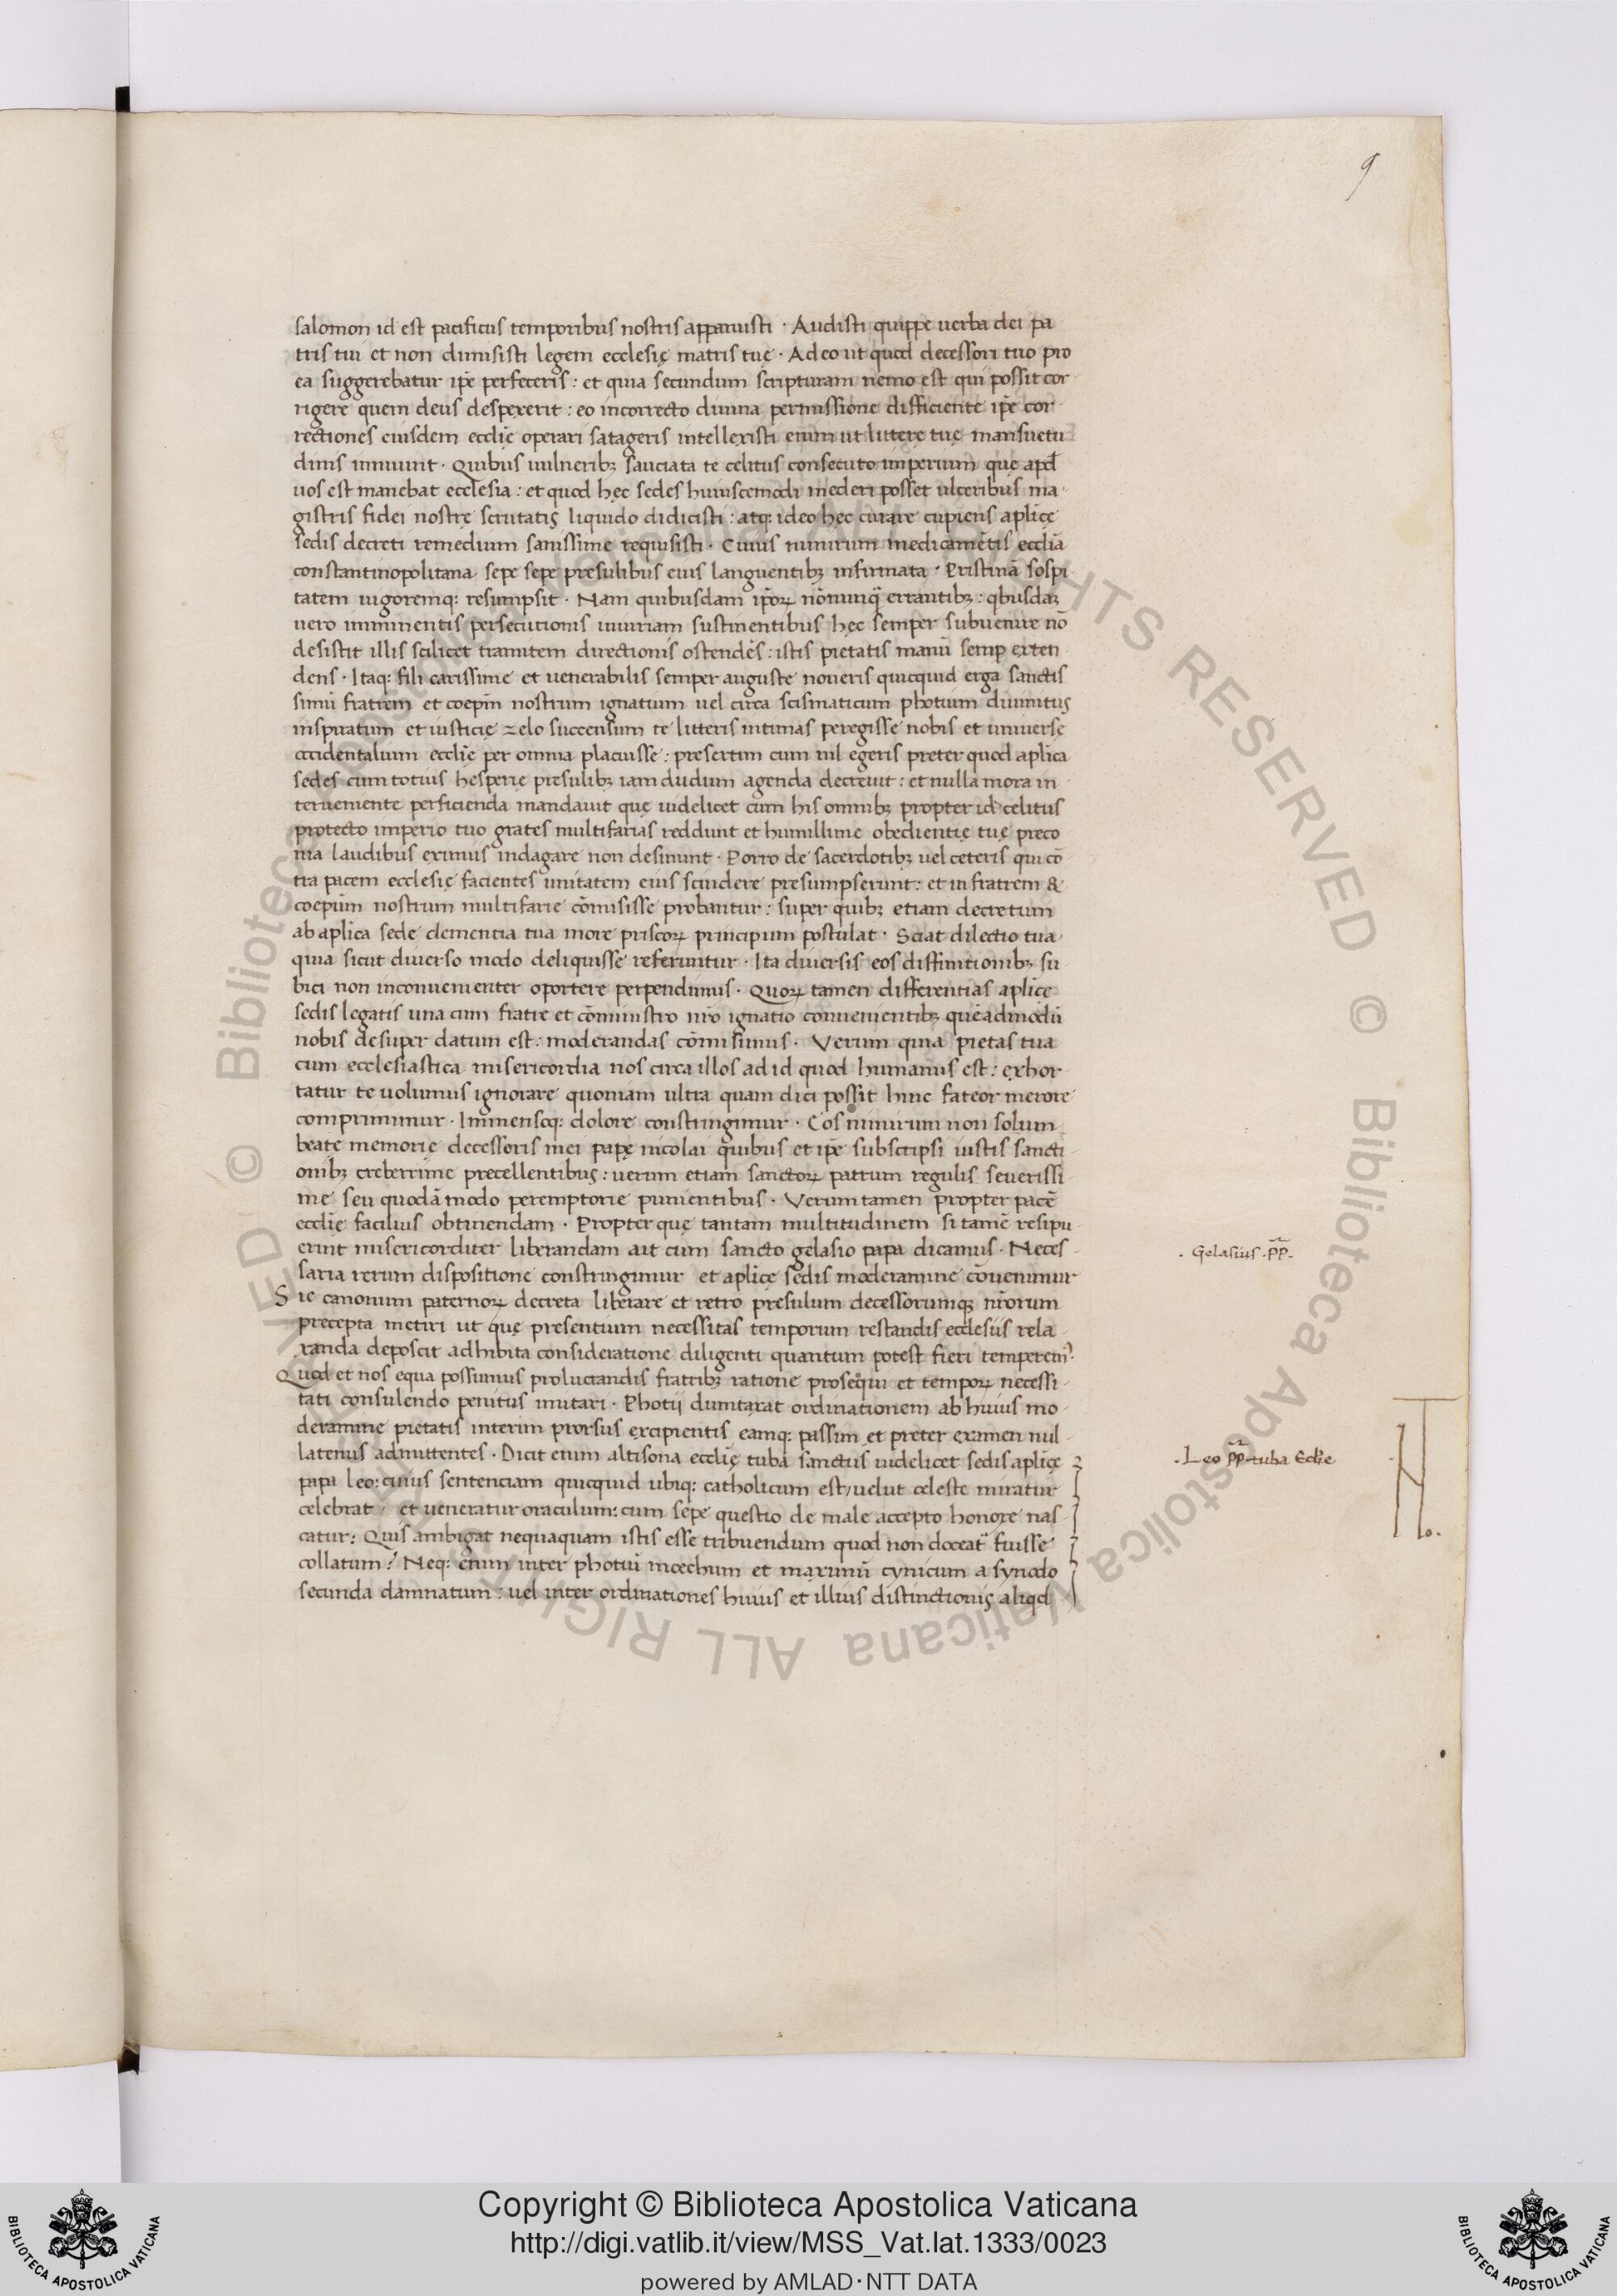 9
salomon id est pacificus temporibus nostris apparuisti · Audisti quippe uerba dei pa
tris tui et non dimisisti legem ecclesię matris tuę · Adeo ut quod decessori tuo pro
ea suggerebatur ip̄e perfeceris : et quia secundum scripturam nemo est qui possit cor-
rigere quem deus despexerit : eo incorrecto diuina permissione difficiente ip̄e cor-
rectiones eiusdem eccl̄ię operari satageris intellexisti enim ut litterę tuę mansuetu
dinis innuunt · Quibus uulneribꝫ sauciata te celitus consecuto imperium quę apd̄
uos est manebat ecclesia : et quod hęc sedes huiuscemodi mederi posset ulceribus ma-
gistris fidei nostrę scrutatis liquido didicisti : atq: ideo hęc curare cupiens ap̄licę
sedis decreti remedium sanissime requisisti · Cuius nimirum medicamētis eccl̄ia
constantinopolitana sepe sepe presulibus eius languentibꝫ infirmata · Pristinā sospi-
tatem uigoremq: resumpsit · Nam quibusdam ip̄oꝝ nōnunq̄ errantibꝫ : qbusdaꝫ
uero imminentis persecutionis iniuriam sustinentibus hęc semper subuenire nō
desistit illis scilicet tramitem directionis ostendēs : istis pietatis manū semꝑ exten
dens · Itaq: fili carissime et uenerabilis semper auguste noueris quicquid erga sanctis
simū fratrem et coep̄m nostrum ignatium uel circa scismaticum photium diuinitus
inspiratum et iusticię zelo succensum te litteris intimas peregisse nobis et uniuersę
occidentalium eccl̄ię per omnia placuisse : presertim cum nil egeris preter quod ap̄lica
sedes cum totius hesperię presulibꝫ iam dudum agenda decreuit : et nulla mora in-
terueniente perficienda mandauit quę uidelicet cum his omnibꝫ propter id celitus
protecto imperio tuo grates multifarias reddunt et humillime obedientię tuę preco
nia laudibus eximiis indagare non desinunt · Porro de sacerdotibꝫ uel ceteris qui cō
tra pacem ecclesię facientes unitatem eius scindere presumpserunt : et in fratrem &
coep̄um nostrum multifarie cōmisisse probantur : super quibꝫ etiam decretum
ab ap̄lica sede clementia tua more priscoꝝ principum postulat · Sciat dilectio tua
quia sicut diuerso modo deliquisse referuntur · Ita diuersis eos diffinitionibꝫ su
bici non inconuenienter oportere perpendimus · Quoꝝ tamen differentias ap̄licę
sedis legatis una cum fratre et cōministro nr̄o ignatio conuenientibꝫ quēadmodū
nobis desuper datum est : moderandas cōmisimus · Verum quia pietas tua
cum ecclesiastica misericordia nos circa illos ad id quod humanius est : exhor-
tatur te uolumus ignorare quoniam ultra quam dici possit hinc fateor merore
comprimimur · Immensoq: dolore constringimur · Eos nimirum non solum
beatę memorię decessoris mei papę nicolai quibus et ip̄e subscripsi iustis sancti-
onibꝫ creberrime precellentibus : uerum etiam sanctoꝝ patrum regulis seuerissi-
me seu quodā modo peremptorie punientibus · Verum tamen propter pacē
eccl̄ię facilius obtinendam · Propter quę tantam multitudinem si tamē resipu-
erint misericorditer liberandam ait cum sancto gelasio papa dicamus · Neces-
saria rerum dispositione constringimur et ap̄licę sedis moderamine cōuenimur
Sic canonum paternoꝝ decreta librare et retro presulum decessorumqꝫ nr̄orum
precepta metiri ut quę presentium necessitas temporum restandis ecclesiis rela-
xanda deposcit adhibita consideratione diligenti quantum potest fieri temperem̉·
Quod et nos equa possumus proluctandis fratribꝫ ratione prosequi et tempoꝝ necessi-
tati consulendo penitus imitari · Photij dumtaxat ordinationem ab huius mo-
deramine pietatis interim prorsus excipientis eamq: passim et preter examen nul-
latenus admittentes · Dicit enim altisona eccl̄ię tuba sanctus uidelicet sedis ap̄licę
papa leo : cuius sentenciam quicquid ubiq: catholicum est / uelut celeste miratur
celebrat / et ueneratur oraculum : cum sępe questio de male accepto honore nas-
catur : Quis ambigat nequaquam istis esse tribuendum quod non docear̄ fuisse
collatum ? Neq: enim inter photiū moechum et maximū cynicum a synodo
secunda damnatum : uel inter ordinationes huius et illius distinctionis aliqd
· Gelasius · p̄p̄ ·
· Leo p̄p̄ · tuba Eccl̄ie
© Biblioteca Apostolica Vaticana ALL RIGHTS RESERVED © Biblioteca Apostolica Vaticana ALL RIGHTS RESERVED
Copyright © Biblioteca Apostolica Vaticana
http://digi.vatlib.it/view/MSS_Vat.lat.1333/0023
powered by AMLAD·NTT DATA
BIBLIOTECA APOSTOLICA VATICANA
BIBLIOTECA APOSTOLICA VATICANA